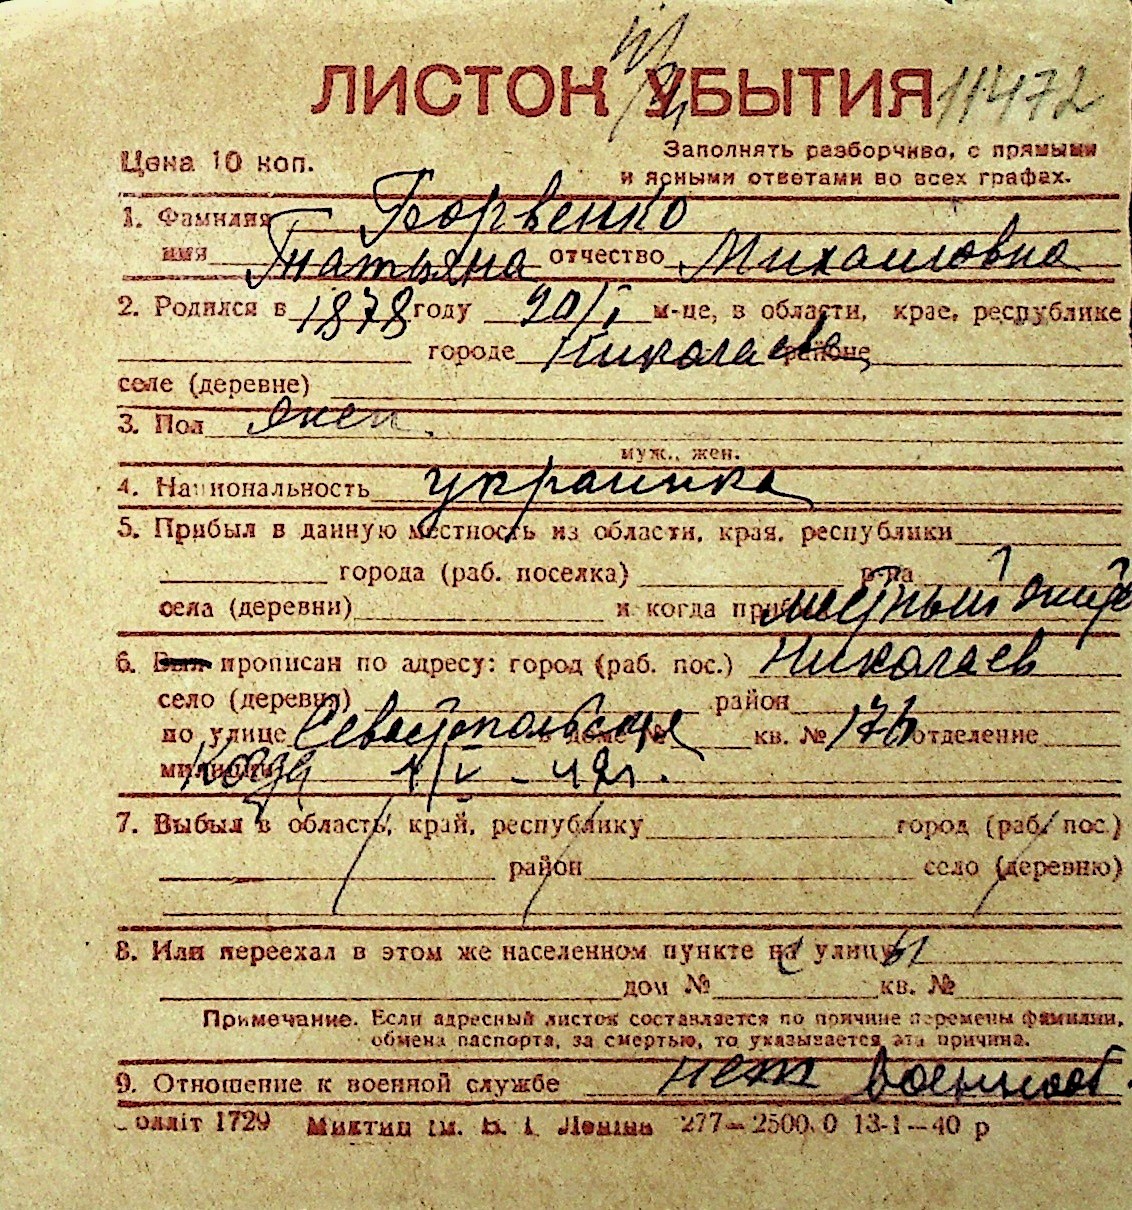 ЛИСТОК УБЫТИЯ 11472
Цена 10 коп.
Заполнять разборчиво, с прямыми
и ясными ответами во всех графах.
1. Фамилия Борвенко
имя Татьяна отчество Михаиловна
2. Родился в 1878 году 20/I м-це, в области, крае, республике
городе Николаеве районе
селе (деревне)
3. Пол жен.
муж., жен.
4. Национальность украинка
5. Прибыл в данную местность из области, края, республики
города (раб. поселка) р-на
села (деревни) и когда прибыл местный жит
6. Был прописан по адресу: город (раб. пос.) Николаев
село (деревня) район
по улице Севастопольская в доме № кв. № 176 отделение
милиции Когда 1/IV - 42 г.
7. Выбыл в область, край, республику город (раб. пос.)
район село (деревню)
8. Или переехал в этом же населенном пункте на улицу
дом № кв. №
Примечание. Если адресный листок составляется по причине перемены фамилии,
обмена паспорта, за смертью, то указывается эта причина.
9. Отношение к военной службе нет военнооб.
олліт 1729 ім. В. І. Леніна 277—2500.0 13-1—40 р